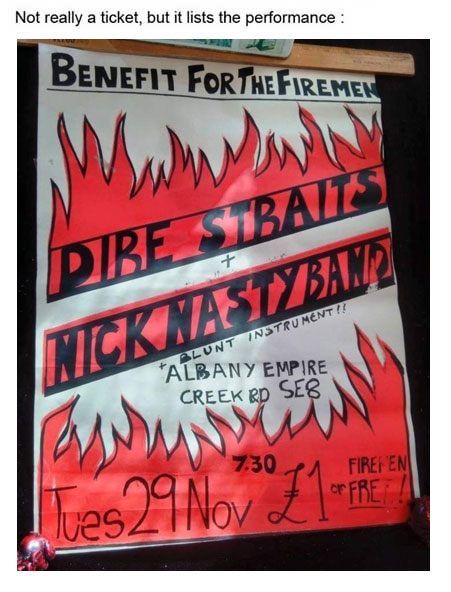 Not really a ticket, but it lists the performance :
BENEFIT FOR THE FIREMEN
DIRE STRAITS
+
NICK NASTY BAND
+ BLUNT INSTRUMENT!!
ALBANY EMPIRE
CREEK RD SE8
7.30
Tues 29 Nov £1 or
FIREMEN
FREE!